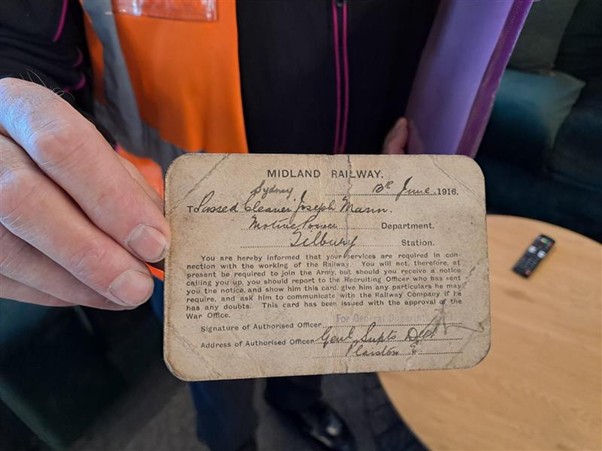 MIDLAND RAILWAY.
Sydney, 13th June, 1916.
To Passed Cleaner, Joseph Mann.
Motive Power Department.
Tilbury Station.
You are hereby informed that your services are required in con-
nection with the working of the Railway. You will not, therefore, at
present be required to join the Army, but should you receive a notice
calling you up, you should report to the Recruiting Officer who has sent
you the notice, and show him this card, give him any particulars he may
require, and ask him to communicate with the Railway Company if he
has any doubts. This card has been issued with the approval of the
War Office.
For General
Signature of Authorised Officer
Address of Authorised Officer Genl Supts Dept
Plaistow E.